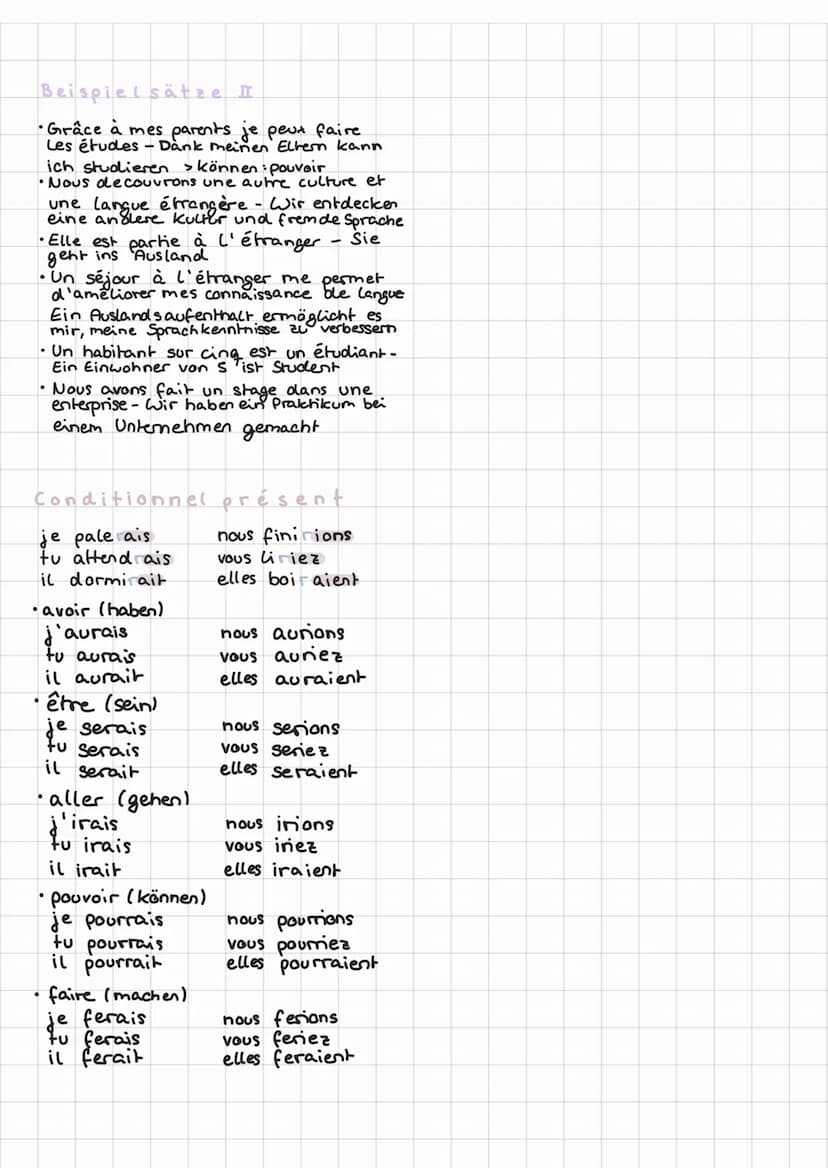 Beispielsätze II
· Grâce à mes parents je peux faire
les études – Dank meinen Eltern kann
ich studieren > können : pouvoir
· Nous decouvrons une autre culture et
une langue étrangère - Wir entdecken
eine andere Kultur und fremde Sprache
· Elle est partie à l'étranger – Sie
geht ins Ausland
· Un séjour à l'étranger me permet
d'améliorer mes connaissance de langue
Ein Auslandsaufenthalt ermöglicht es
mir, meine Sprachkenntnisse zu verbessern
· Un habitant sur cinq est un étudiant -
Ein Einwohner von 5 ist Student
· Nous avons fait un stage dans une
enterprise - Wir haben ein Praktikum bei
einem Unternehmen gemacht
Conditionnel présent
je palerais nous finirions
tu attendrais vous liriez
il dormirait elles boiraient
· avoir (haben)
j'aurais nous aurions
tu aurais vous auriez
il aurait elles auraient
· être (sein)
je serais nous serions
tu serais vous seriez
il serait elles seraient
· aller (gehen)
j'irais nous irions
tu irais vous iriez
il irait elles iraient
· pouvoir (können)
je pourrais nous pourrions
tu pourrais vous pourriez
il pourrait elles pourraient
· faire (machen)
je ferais nous ferions
tu ferais vous feriez
il ferait elles feraient